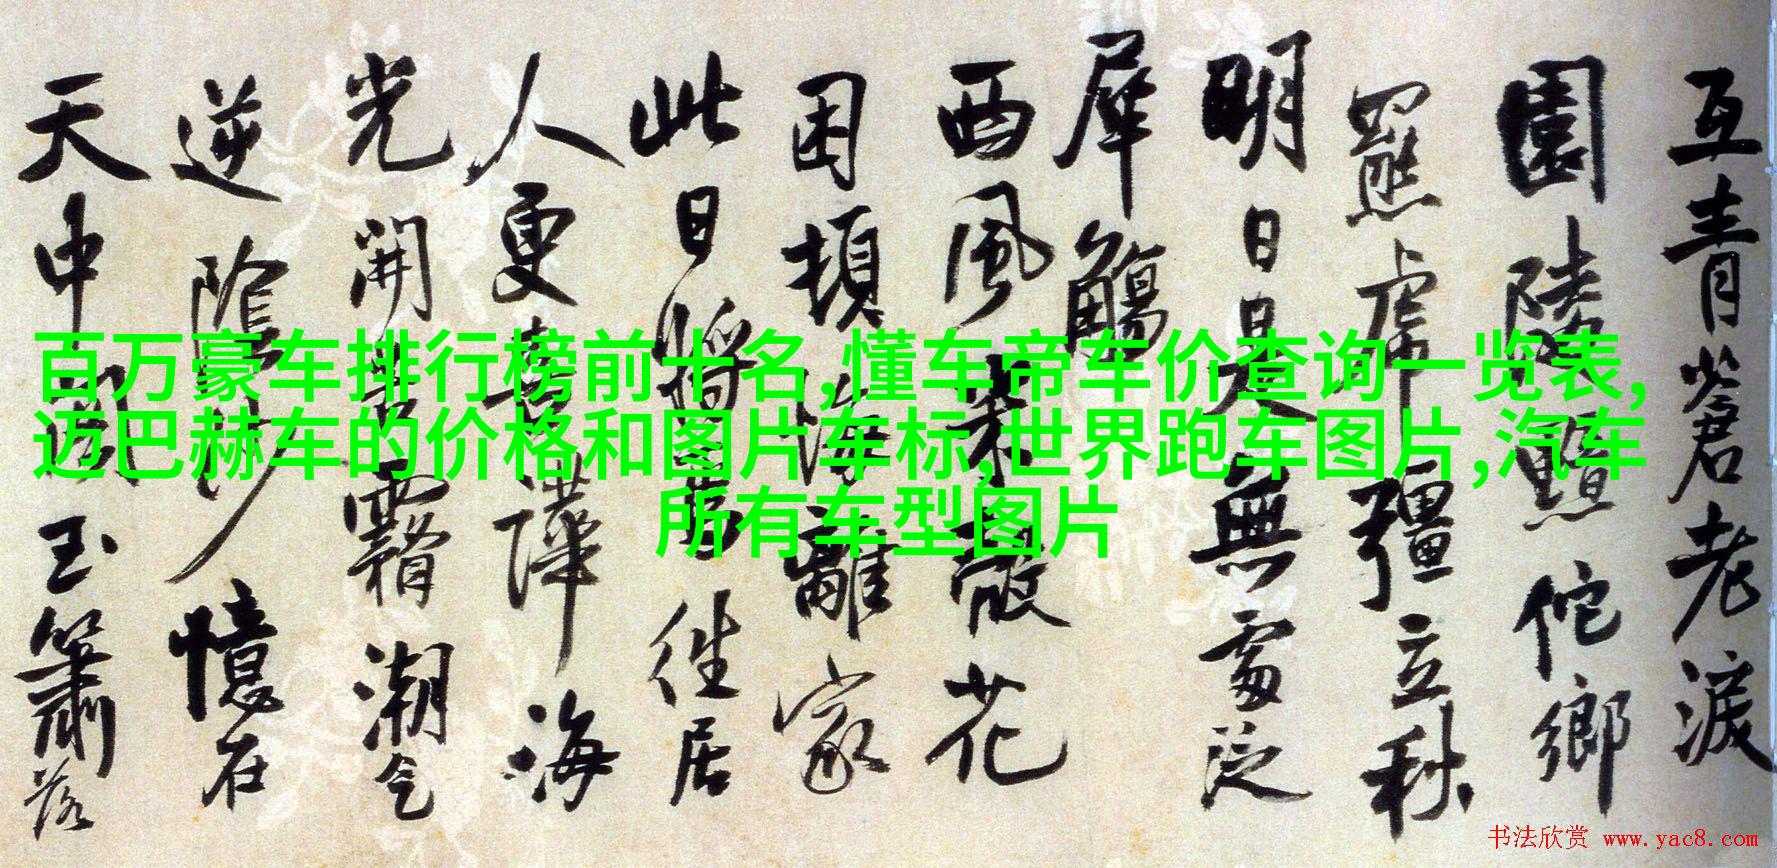 互青蒼老淚
園陵黯佗鄉
羆虎彊立秋
明日是無處泛
犀觴
西風花
困頓離家
此日將往居
人更海
光開潮气
逆憶在
天中玉簫落
百万豪车排行榜前十名,懂车帝车价查询一览表,
迈巴赫车的价格和图片车标,世界跑车图片,汽车
所有车型图片
书法欣赏 www.yac8.com